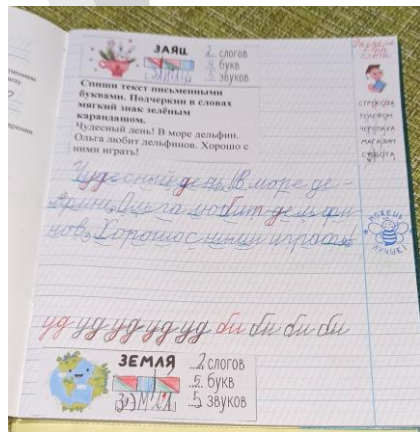 ЗАЯЦ
2 слогов
4 букв
5 звуков
Спиши текст письменными
буквами. Подчеркни в словах
мягкий знак зелёным
карандашом.
Чудесный день! В море дельфин.
Ольга любит дельфинов. Хорошо с
ними играть!
Чудесный день! В море де-
льфин. Ольга любит дельфи
нов. Хорошо с ними играть!
уд уд уд уд уд уд би би би би
ЗЕМЛЯ
2 слогов
5 букв
5 звуков
СТРЕКОЗА
ТЕЛЕФОН
ЧЕРЕПАХА
МАГАЗИН
СУББОТА
МОЖЕШЬ
ЛУЧШЕ!